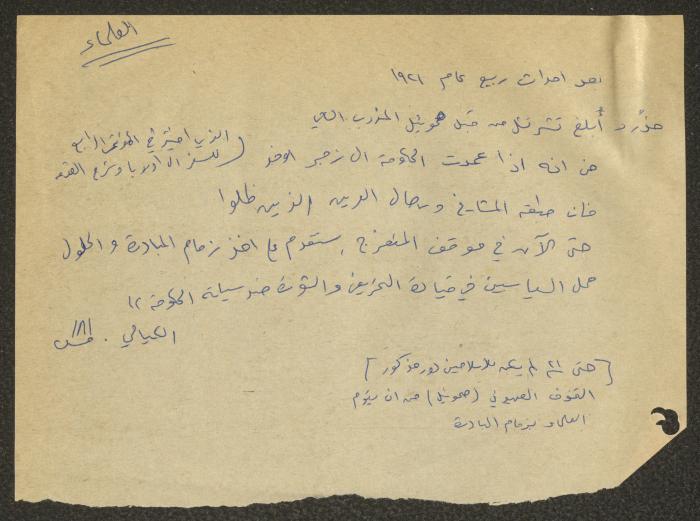 العلماء
بعد احداث ربيع عام ١٩٢١
حذّر أُبلغ تشرشل من قبل صموئيل المندوب السامي
من انه اذا عمدت الحكومة الى زجر الوفد (الذي اختير في المؤتمر الرابع
للسفر الى اوروبا وشرح القضية
فان طبقة المشايخ ورجال الدين الذين ظلوا
حتى الآن في موقف المتفرج، ستقدم على اخذ زمام المبادرة والحلول
محل السياسيين في قيادة التحريض والثورة ضد سياسة الحكومة"
الكيالي . ص ١٨١
[حتى ٢١ لم يكن للاسلاميين دور مذكور]
التخوف الصهيوني (صموئيل) من ان يقوم
العلماء بزمام المبادرة